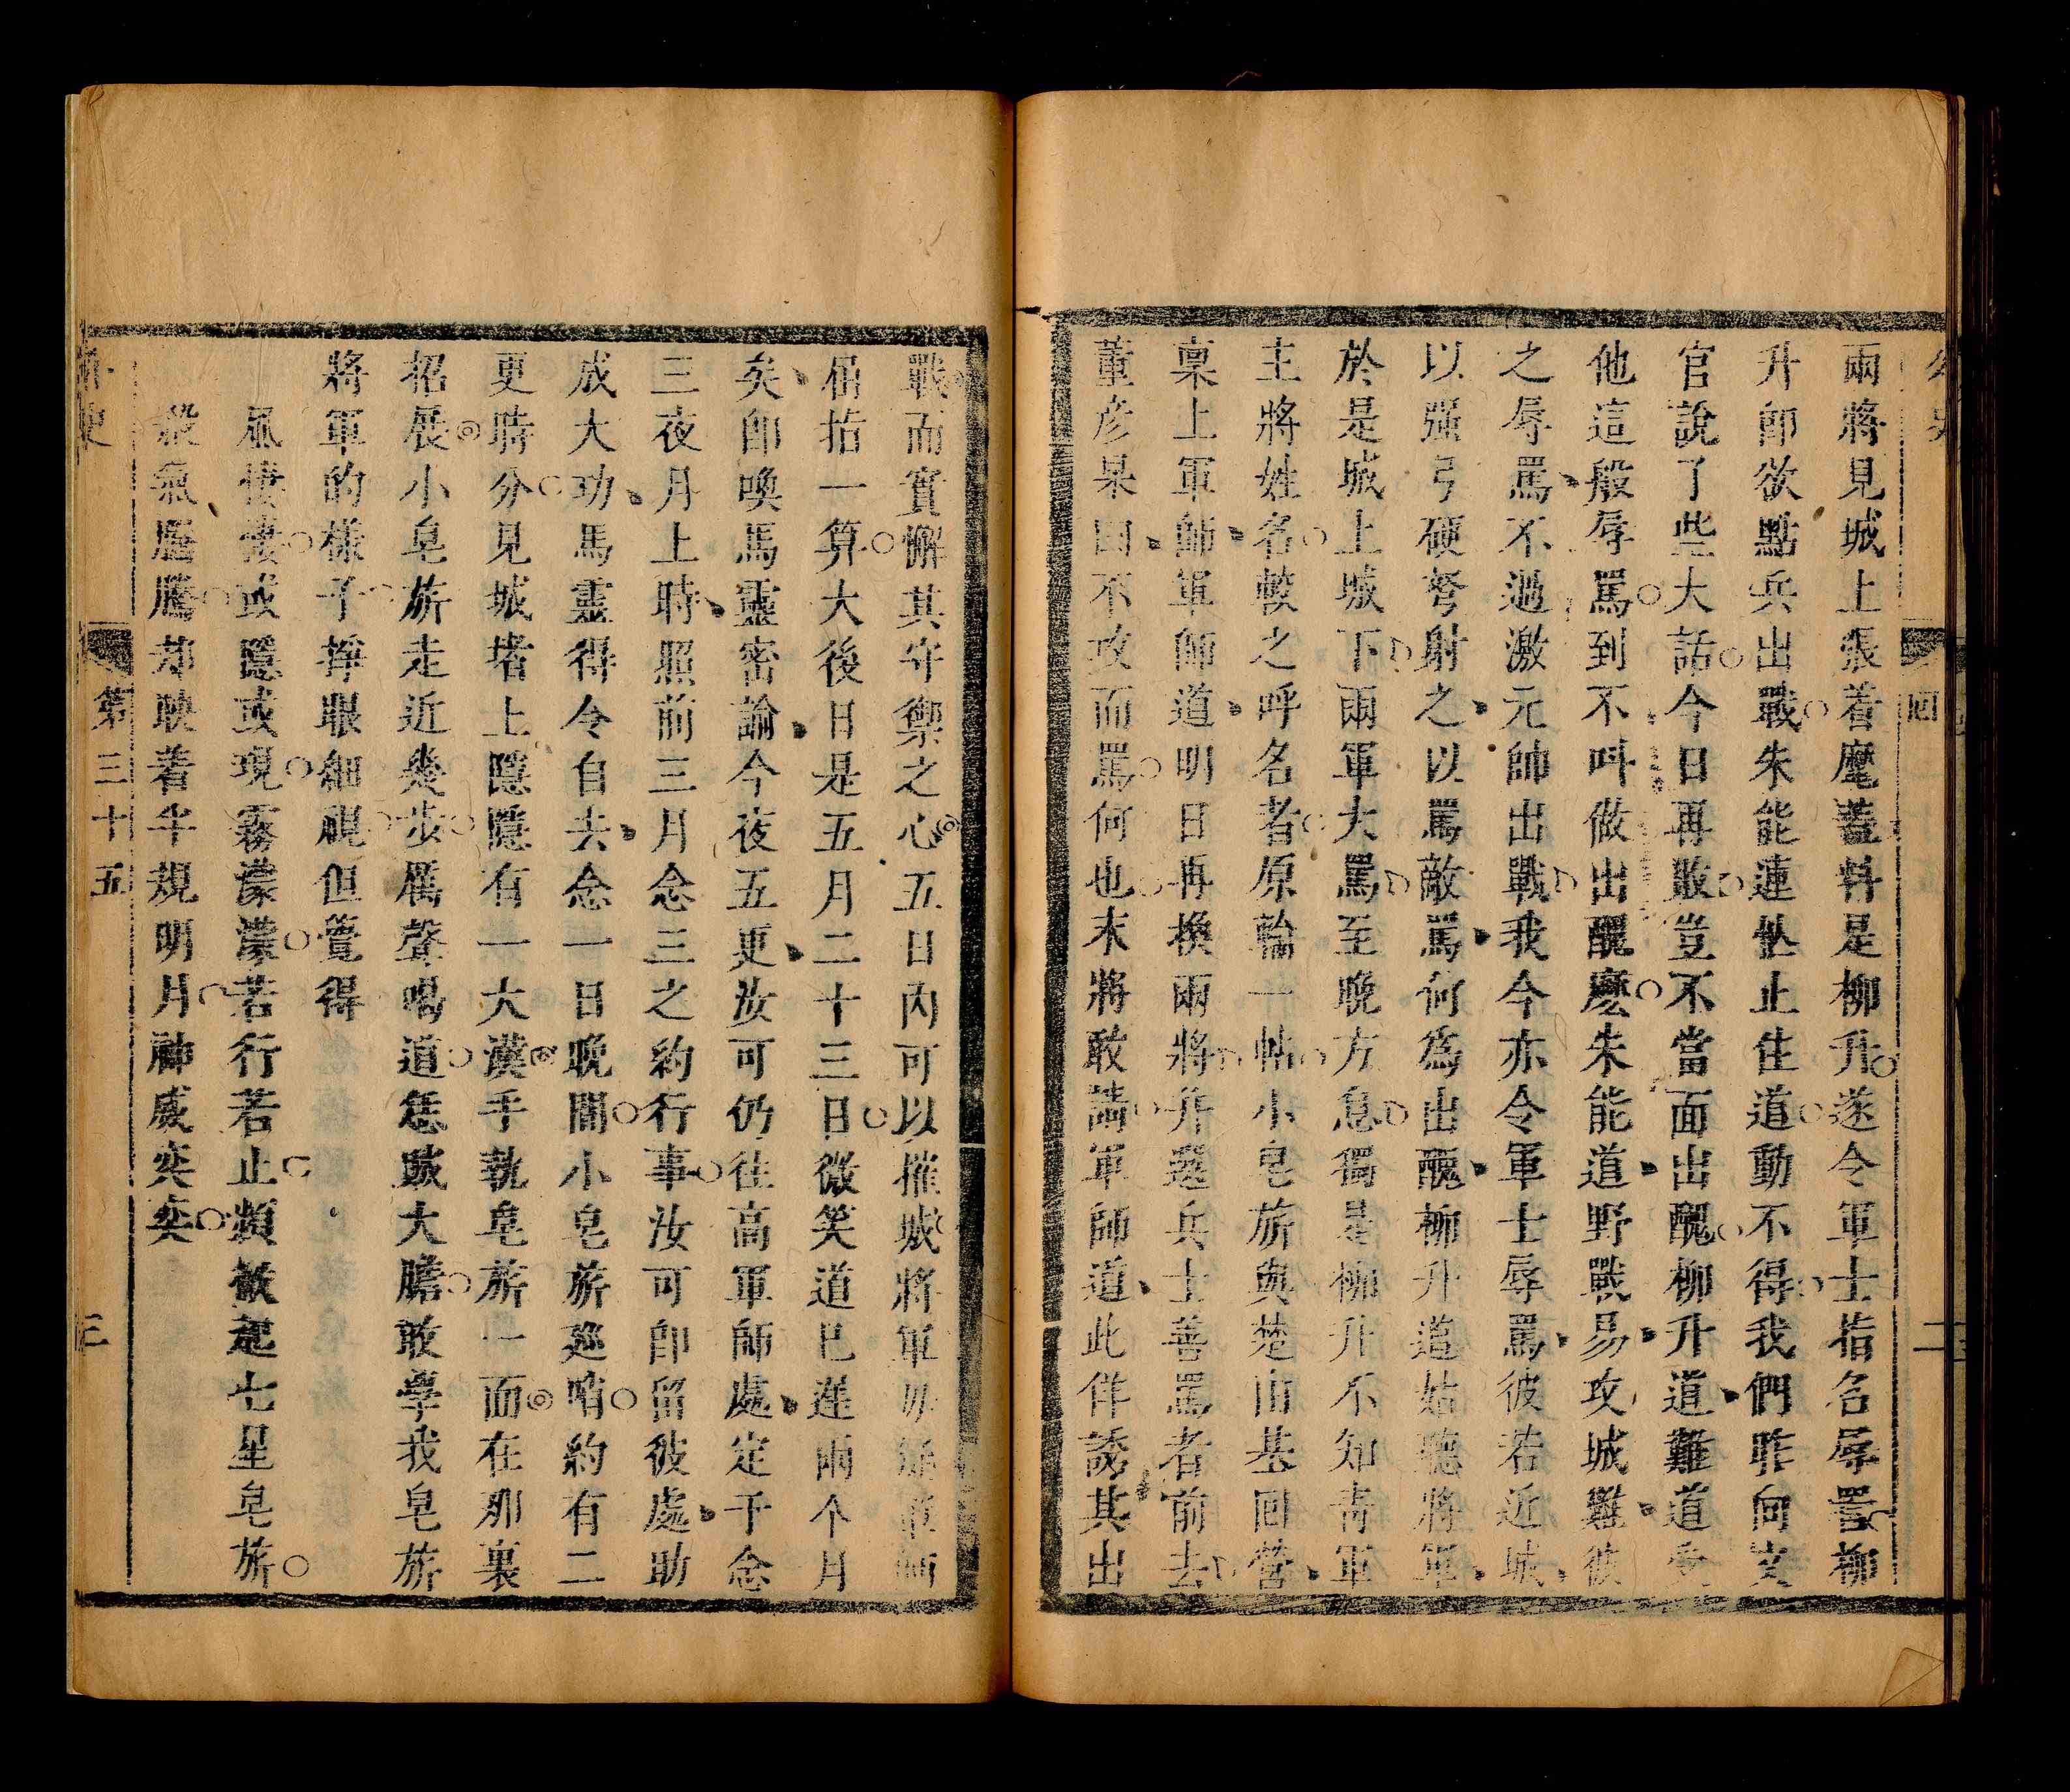 兩將見城上張着麾蓋料是柳升遂令軍士指名辱詈柳
升卽欲點兵出戰朱能連忙止住道動不得我們昨向文
官說了些大話今日再敗豈不當面出醜柳升道難道受
他這般辱罵到不呌做出醜麽朱能道野戰易攻城難彼
之辱罵不過激元帥出戰我今亦令軍士辱罵彼若近城
以强弓硬弩射之以罵敵罵何爲出醜柳升道姑聽將軍
於是城上城下兩軍大罵至晚方息獨是柳升不知青軍
主將姓名較之呼名者原輸一帖小皂旂與楚由基回營
稟上軍師軍師道明日再換兩將并選兵士善罵者前去
董彥杲曰不攻而罵何也末將敢請軍師道此佯誘其出
戰而實懈其守禦之心五日內可以摧城將軍
屈指一算大後日是五月二十三日微笑道已遲兩个月
矣卽喚馬靈密諭今夜五更汝可仍往高軍師處定于念
三夜月上時照前三月念三之約行事汝可卽留彼處助
成大功馬靈得令自去念一日晚間小皂旂巡哨約有二
更時分見城堵上隱隱有一大漢手執皂旂一面在那裏
招展小皂旂走近幾步厲聲喝道怎賊大膽敢學我皂旂
將軍的樣子挣眼細視但覺得
風悽悽或隱或現霧濛濛若行若止頻𢿙起七星皂旂
殺氣騰騰却映着半規明月神威奕奕
第三十五
三
回
二